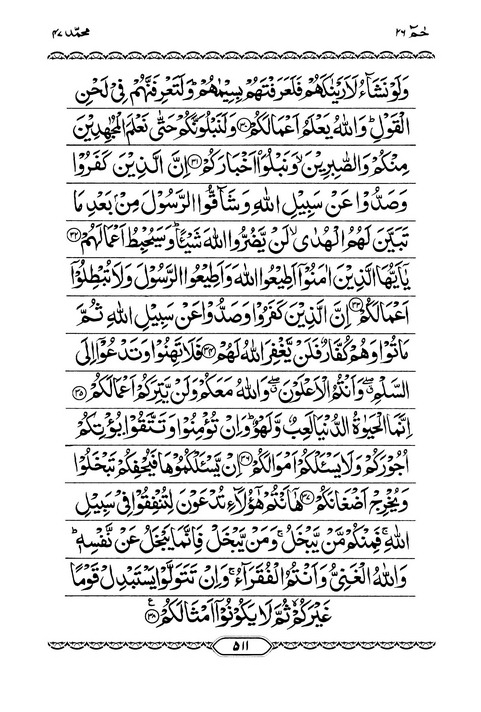 حٰمٓ ۲۶ محمّد ۴۷
وَلَوْ نَشَآءُ لَاَرَيْنٰكَهُمْ فَلَعَرَفْتَهُمْ بِسِيْمٰهُمْ ؕ وَلَتَعْرِفَنَّهُمْ فِىْ لَحْنِ
الْقَوْلِ ؕ وَاللّٰهُ يَعْلَمُ اَعْمَالَكُمْ ﴿۳۰﴾ وَلَنَبْلُوَنَّكُمْ حَتّٰى نَعْلَمَ الْمُجٰهِدِيْنَ
مِنْكُمْ وَالصّٰبِرِيْنَ ۙ وَنَبْلُوَا۟ اَخْبَارَكُمْ ﴿۳۱﴾ اِنَّ الَّذِيْنَ كَفَرُوْا
وَصَدُّوْا عَنْ سَبِيْلِ اللّٰهِ وَشَآقُّوا الرَّسُوْلَ مِنْۢ بَعْدِ مَا
تَبَيَّنَ لَهُمُ الْهُدٰى ۙ لَنْ يَّضُرُّوا اللّٰهَ شَيْـًٔا ؕ وَسَيُحْبِطُ اَعْمَالَهُمْ ﴿۳۲﴾
يٰۤاَيُّهَا الَّذِيْنَ اٰمَنُوْۤا اَطِيْعُوا اللّٰهَ وَاَطِيْعُوا الرَّسُوْلَ وَلَا تُبْطِلُوْۤا
اَعْمَالَكُمْ ﴿۳۳﴾ اِنَّ الَّذِيْنَ كَفَرُوْا وَصَدُّوْا عَنْ سَبِيْلِ اللّٰهِ ثُمَّ
مَاتُوْا وَهُمْ كُفَّارٌ فَلَنْ يَّغْفِرَ اللّٰهُ لَهُمْ ﴿۳۴﴾ فَلَا تَهِنُوْا وَتَدْعُوْۤا اِلَى
السَّلْمِ ۖ وَاَنْتُمُ الْاَعْلَوْنَ ۖ وَاللّٰهُ مَعَكُمْ وَلَنْ يَّتِرَكُمْ اَعْمَالَكُمْ ﴿۳۵﴾
اِنَّمَا الْحَيٰوةُ الدُّنْيَا لَعِبٌ وَّلَهْوٌ ؕ وَاِنْ تُؤْمِنُوْا وَتَتَّقُوْا يُؤْتِكُمْ
اُجُوْرَكُمْ وَلَا يَسْـَٔلْكُمْ اَمْوَالَكُمْ ﴿۳۶﴾ اِنْ يَّسْـَٔلْكُمُوْهَا فَيُحْفِكُمْ تَبْخَلُوْا
وَيُخْرِجْ اَضْغَانَكُمْ ﴿۳۷﴾ هٰۤاَنْتُمْ هٰۤؤُلَآءِ تُدْعَوْنَ لِتُنْفِقُوْا فِىْ سَبِيْلِ
اللّٰهِ ۚ فَمِنْكُمْ مَّنْ يَّبْخَلُ ۚ وَمَنْ يَّبْخَلْ فَاِنَّمَا يَبْخَلُ عَنْ نَّفْسِهٖ ؕ
وَاللّٰهُ الْغَنِىُّ وَاَنْتُمُ الْفُقَرَآءُ ۚ وَاِنْ تَتَوَلَّوْا يَسْتَبْدِلْ قَوْمًا
غَيْرَكُمْ ۙ ثُمَّ لَا يَكُوْنُوْۤا اَمْثَالَكُمْ ﴿۳۸﴾ ع
۵۱۱